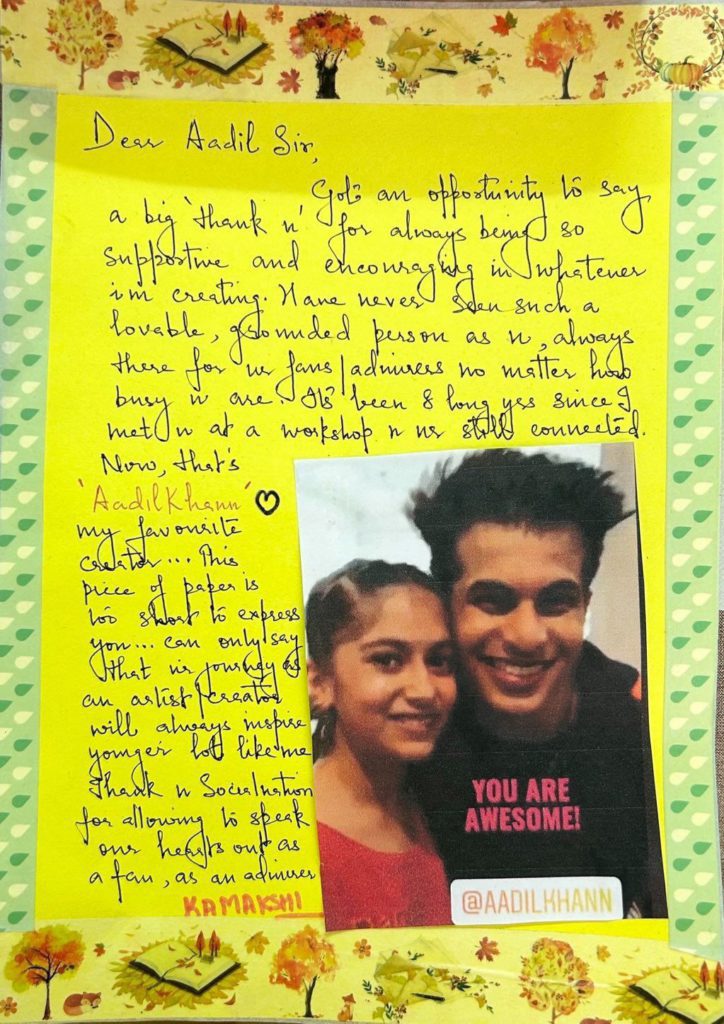 Dear Aadil Sir,
Got an opportunity to say
a big 'thank u' for always being so
supportive and encouraging in whatever
i'm creating. Have never seen such a
lovable, grounded person as u, always
there for ur fans/admirers no matter how
busy u are. It's been 8 long yrs since I
met u at a workshop n we still connected.
Now, that's
'AadilKhann' ♡
my favourite
creator... This
piece of paper is
too short to express
you... can only say
that ur journey as
an artist/creator
will always inspire
younger lot like me
Thank u Socialnation
for allowing to speak
our hearts out as
a fan, as an admirer
KAMAKSHI
YOU ARE
AWESOME!
@AADILKHANN